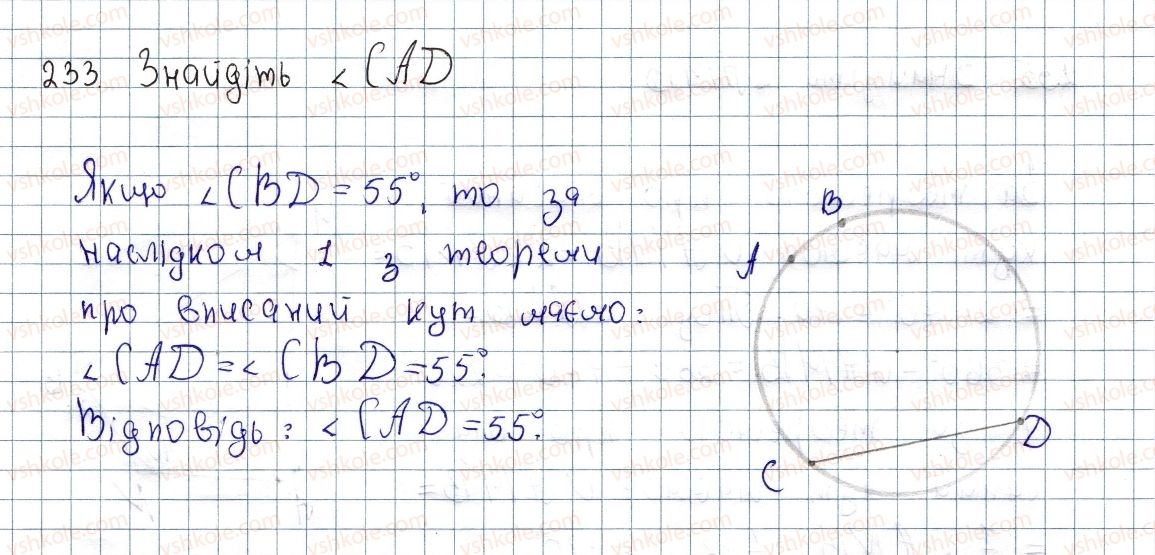 233. Знайдіть < CAD
Якщо < CBD = 55°, то за
наслідком 1 з теореми
про вписаний кут маємо:
< CAD = < CBD = 55°.
Відповідь: < CAD = 55°.
B
A
D
C
vshkole.com